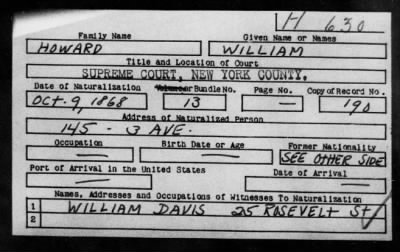 H 630
Family Name Given Name or Names
HOWARD WILLIAM
Title and Location of Court
SUPREME COURT, NEW YORK COUNTY.
Date of Naturalization Volume or Bundle No. Page No. Copy of Record No.
OCT. 9, 1868 13 — 190
Address of Naturalized Person
145 - 3 AVE.
Occupation Birth Date or Age Former Nationality
— — SEE OTHER SIDE
Port of Arrival in the United States Date of Arrival
— —
Names, Addresses and Occupations of Witnesses To Naturalization
1 WILLIAM DAVIS 25 ROSEVELT St
2